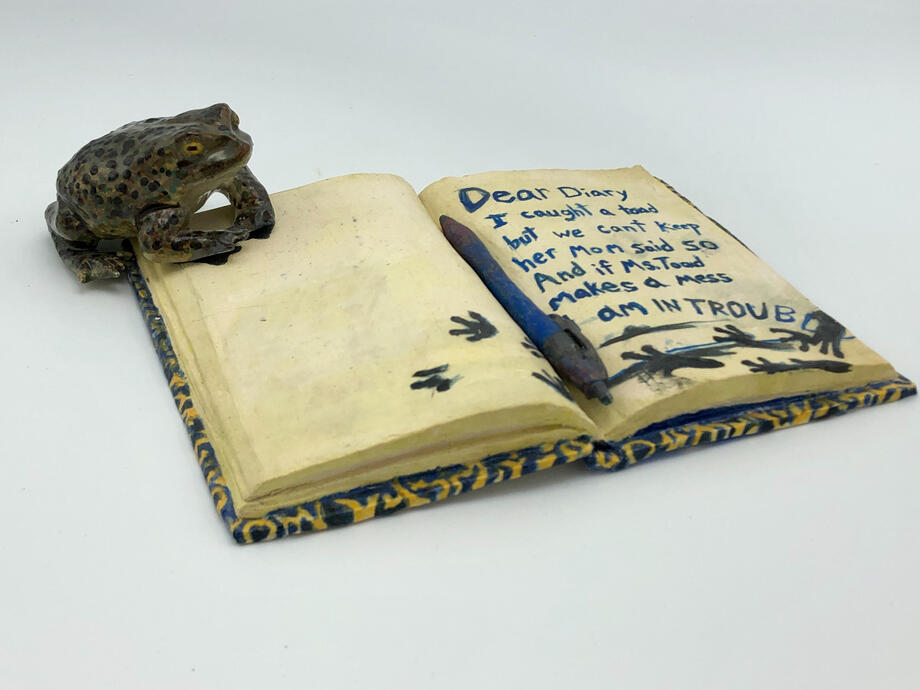 Dear Diary
I caught a toad
but we cant keep
her Mom said so
And if Ms.Toad
makes a mess
am IN TROUB